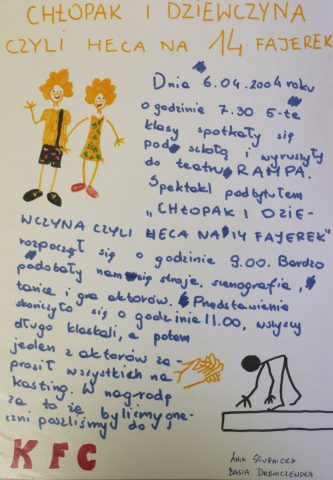 CHŁOPAK I DZIEWCZYNA
CZYLI HECA NA 14 FAJEREK
Dnia 6.04.2004 roku
o godzinie 7.30 5-te
klasy spotkały się
pod szkołą i wyruszyły
do teatru RAMPA.
Spektakl pod tytułem
„CHŁOPAK I DZIE-
WCZYNA CZYLI HECA NA 14 FAJEREK"
rozpoczął się o godzinie 9.00. Bardzo
podobały nam się stroje, scenografia,
tańce i gra aktorów. Przedstawienie
skończyło się o godzinie 11.00, wszyscy
długo klaskali, a potem
jeden z aktorów za-
prosił wszystkich na
kasting. W nagrodę
za to że byliśmy grze-
czni poszliśmy do
KFC
Ania Słupnicka
Basia Drewiczewska